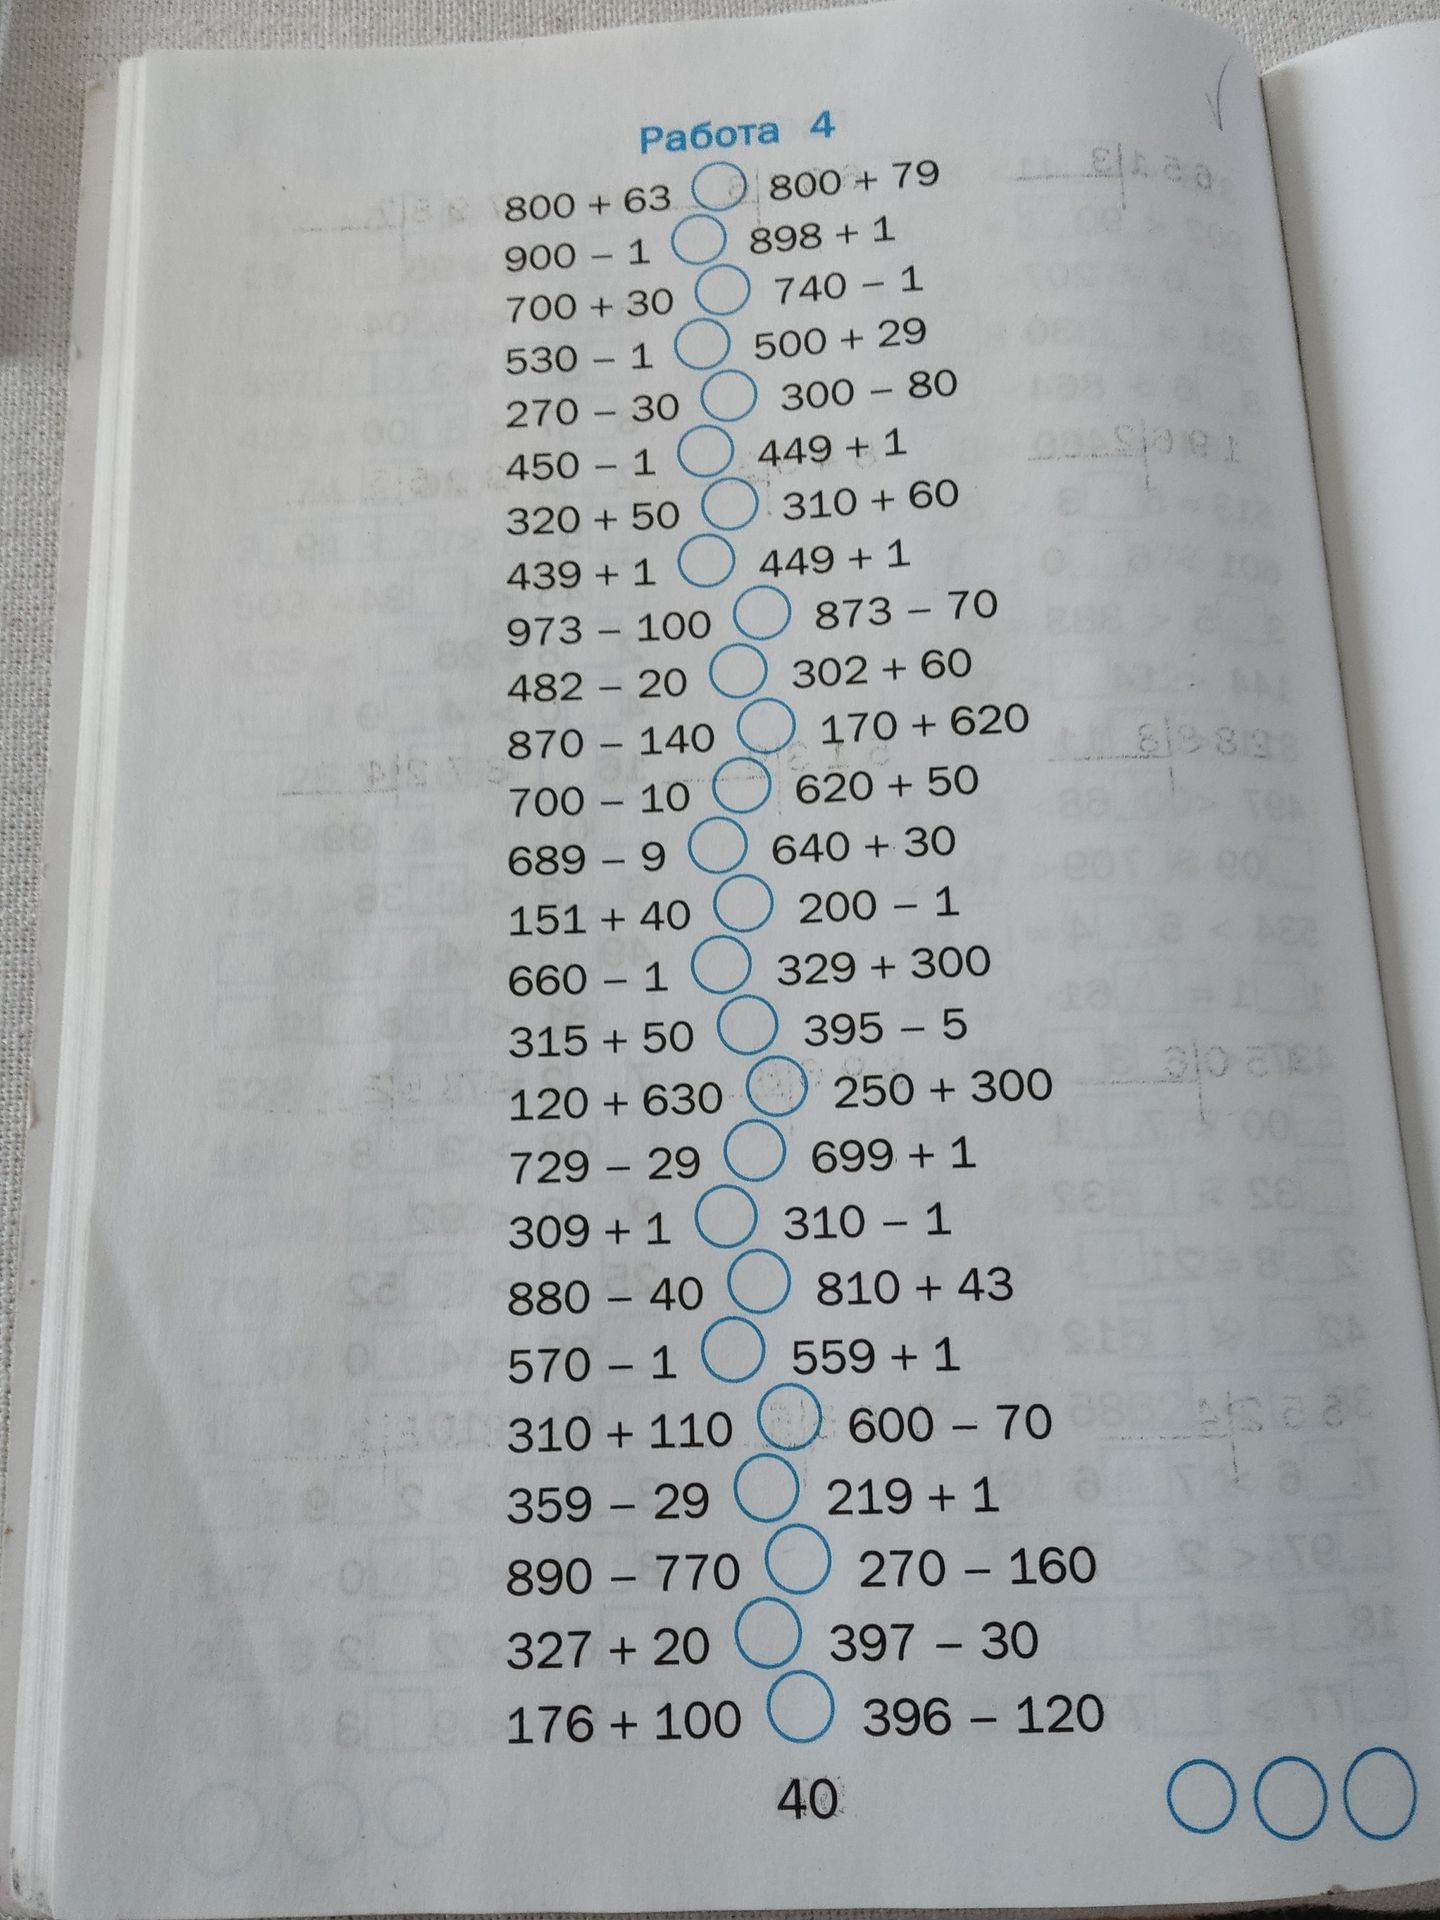 Работа 4
800 + 63 800 + 79
900 – 1 898 + 1
700 + 30 740 – 1
530 – 1 500 + 29
270 – 30 300 – 80
450 – 1 449 + 1
320 + 50 310 + 60
439 + 1 449 + 1
973 – 100 873 – 70
482 – 20 302 + 60
870 – 140 170 + 620
700 – 10 620 + 50
689 – 9 640 + 30
151 + 40 200 – 1
660 – 1 329 + 300
315 + 50 395 – 5
120 + 630 250 + 300
729 – 29 699 + 1
309 + 1 310 – 1
880 – 40 810 + 43
570 – 1 559 + 1
310 + 110 600 – 70
359 – 29 219 + 1
890 – 770 270 – 160
327 + 20 397 – 30
176 + 100 396 – 120
40